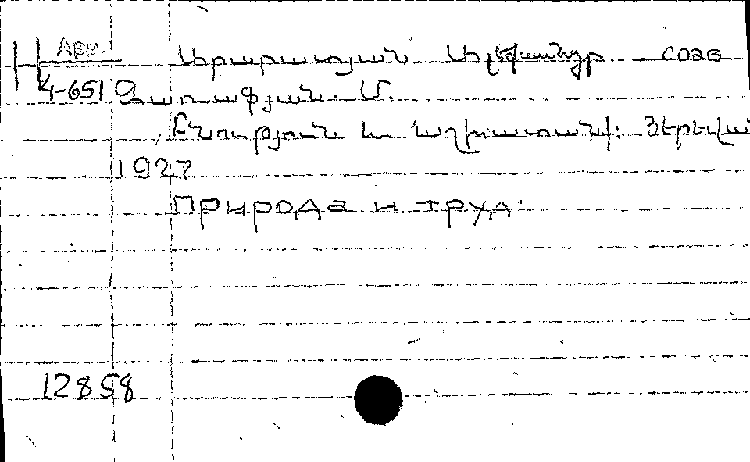 Н Арм. Արարատյան Ալեքսանդր соав
4-651 Զառաֆյան. Մ.
Բնություն և աշխատանք: Յերևան
1927
Природа и труд.
12858